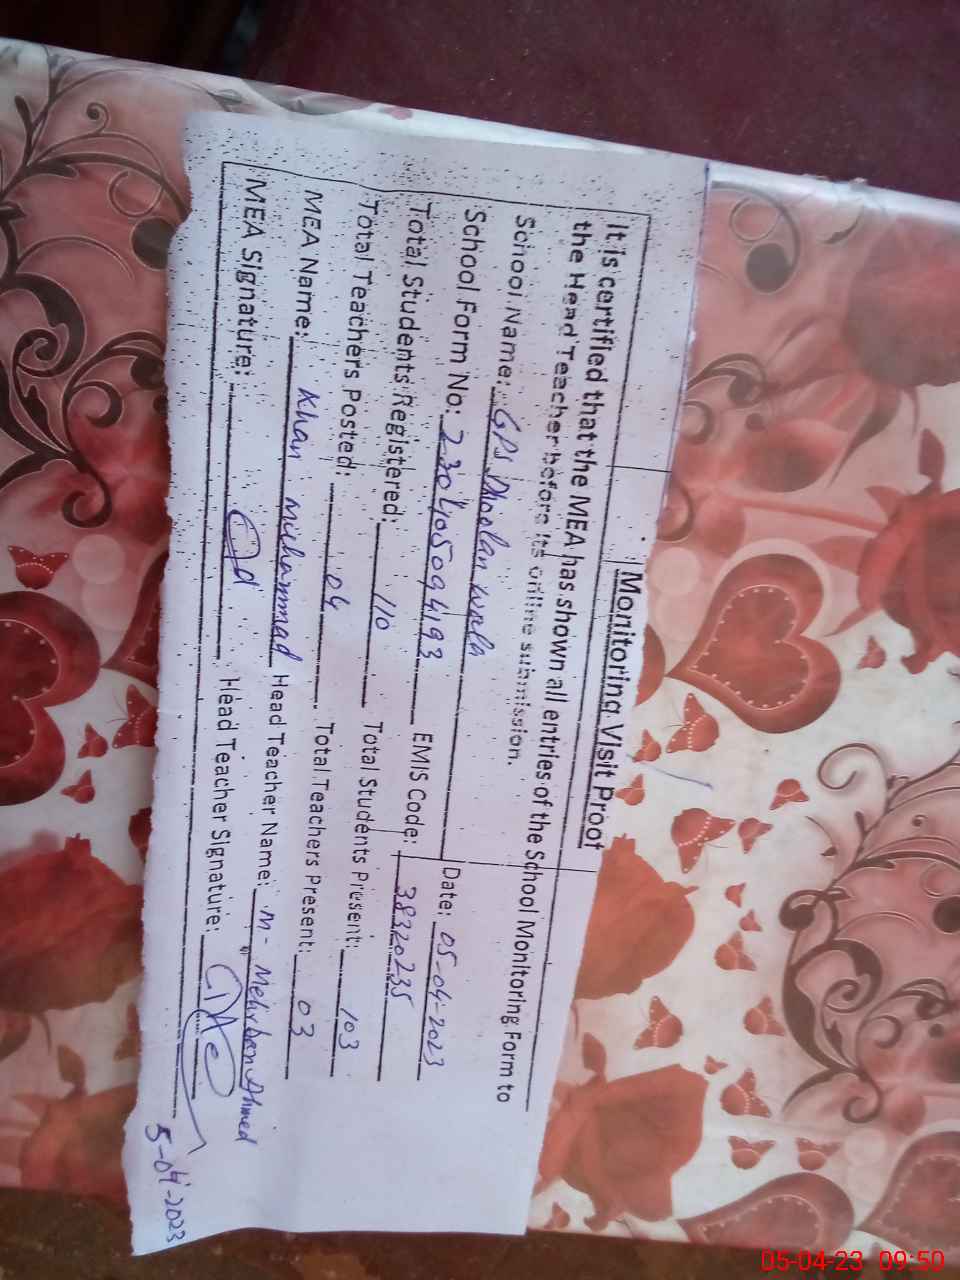 Monitoring Visit Proof
It is certified that the MEA has shown all entries of the School Monitoring Form to
the Head Teacher before its online submission.
School Name: GPS Dhoolan Walla Date: 05-04-2023
School Form No: 230405094193 EMIS Code: 38320235
Total Students Registered: 110 Total Students Present: 103
Total Teachers Posted: 04 Total Teachers Present: 03
MEA Name: Khan Muhammad Head Teacher Name: M- Mehrban Ahmed
MEA Signature: Head Teacher Signature:
5-04-2023
05-04-23 09:50